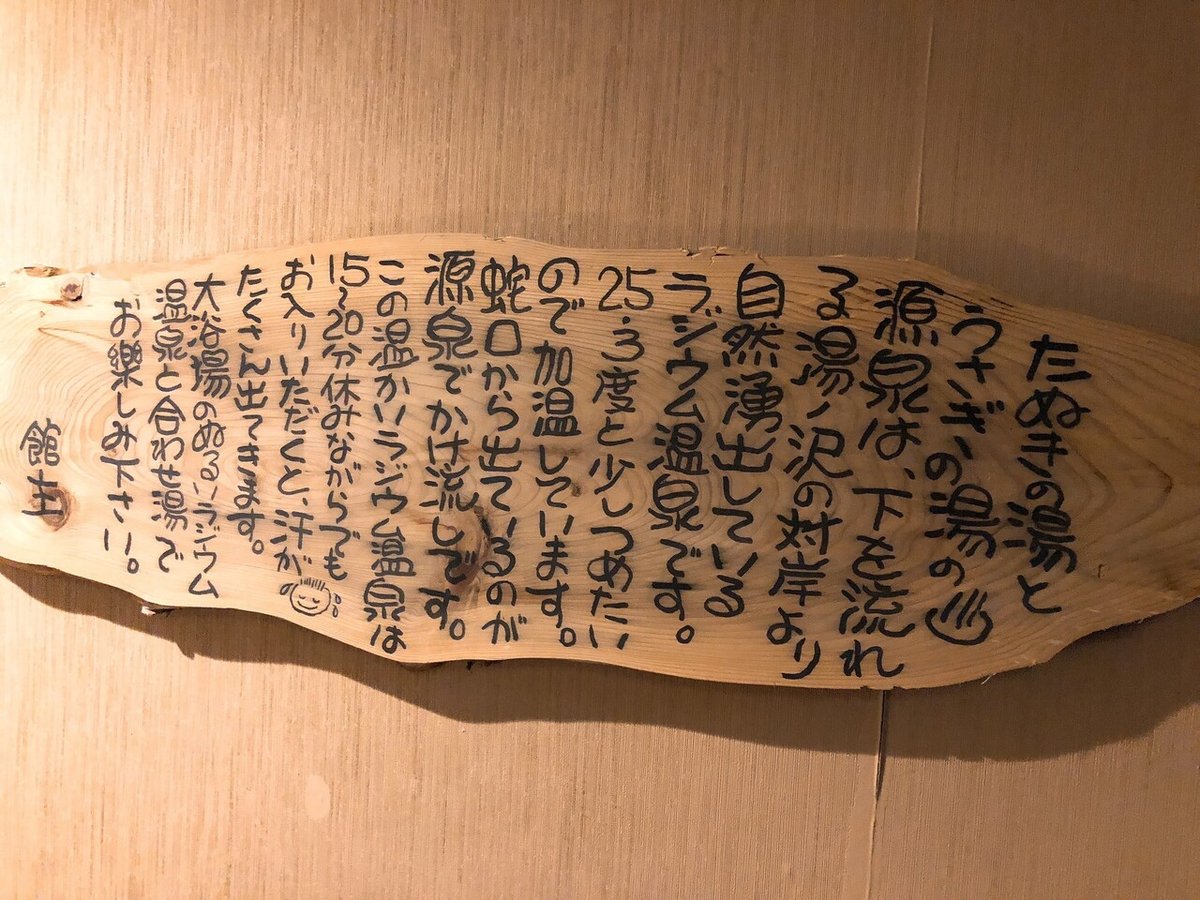 たぬきの湯と
うさぎの湯の♨
源泉は、下を流れ
る湯ノ沢の対岸より
自然湧出している
ラジウム温泉です。
25.3度と少しつめたい
ので加温しています。
蛇口から出ているのが
源泉でかけ流しです。
この温かいラジウム温泉は
15~20分休みながらでも
お入りいただくと、汗が
たくさん出てきます。
大浴場のぬるいラジウム
温泉と合わせ湯で
お樂しみ下さい。
館主